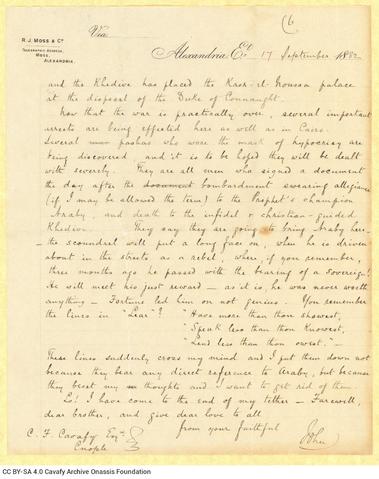 (6
R. J. MOSS & Co.
TELEGRAPHIC ADDRESS,
MOSS,
ALEXANDRIA.
Via
Alexandria, Et. 17 September 1882
and the Khedive has placed the Kasr-el-Nousa palace
at the disposal of the Duke of Connaught.
Now that the war is practically over, several important
arrests are being effected here as well as in Cairo.
Several pashas who wore the mask of hypocrisy are
being discovered and it is to be hoped they will be dealt
with severely. They are all men who signed a document
the day after the document bombardment swearing allegiance
(if I may be allowed the term) to the Prophet's champion
Araby, and death to the infidel & christian-guided
Khedive. They say they are going to bring Araby here
- the scoundrel will put a long face on, when he is driven
about in the streets as a rebel, where, if you remember,
three months ago he passed with the bearing of a sovereign!
He will meet his just reward - as it is, he was never worth
anything - Fortune led him on not genius. You remember
the lines in "Lear"? "Have more than thou showest,
"Speak less than thou knowest,
"Lend less than thou owest." -
These lines suddenly cross my mind and I put them down not
because they bear any direct reference to Araby, but because
they beset my thoughts and I want to get rid of them.
Lo! I have come to the end of my tether - Farewell,
dear brother, and give dear love to all
from your faithful
John
C. F. Cavafy Esqre
Cnople
CC BY-SA 4.0 Cavafy Archive Onassis Foundation